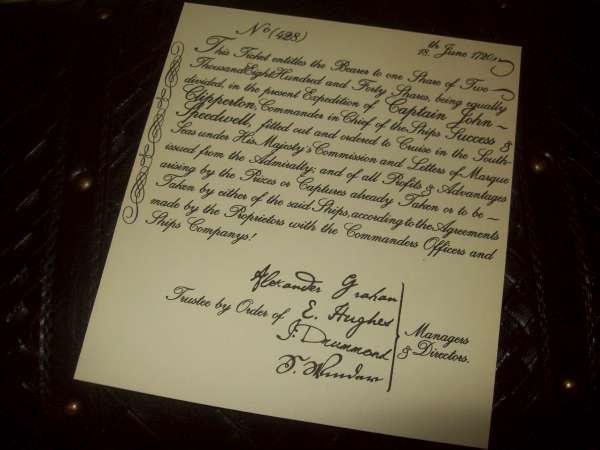 No (428)
18. th June 1720
This Ticket entitles the Bearer to one Share of Two
Thousand Eight Hundred and Forty Shares, being equally
divided, in the present Expedition of Captain John
Clipperton, Commander in Chief of the Ships Success &
Speedwell, fitted out and ordered to Cruise in the South-
Seas under His Majesty's Commission and Letters of Marque
issued from the Admiralty; and of all Profits & Advantages
arising by the Prizes or Captures already Taken or to be
Taken by either of the said Ships, according to the Agreements
made by the Proprietors with the Commanders Officers and
Ships Companys!
Alexander Graham
Trustee by Order of E. Hughes
J. Drummond
Managers
& Directors.